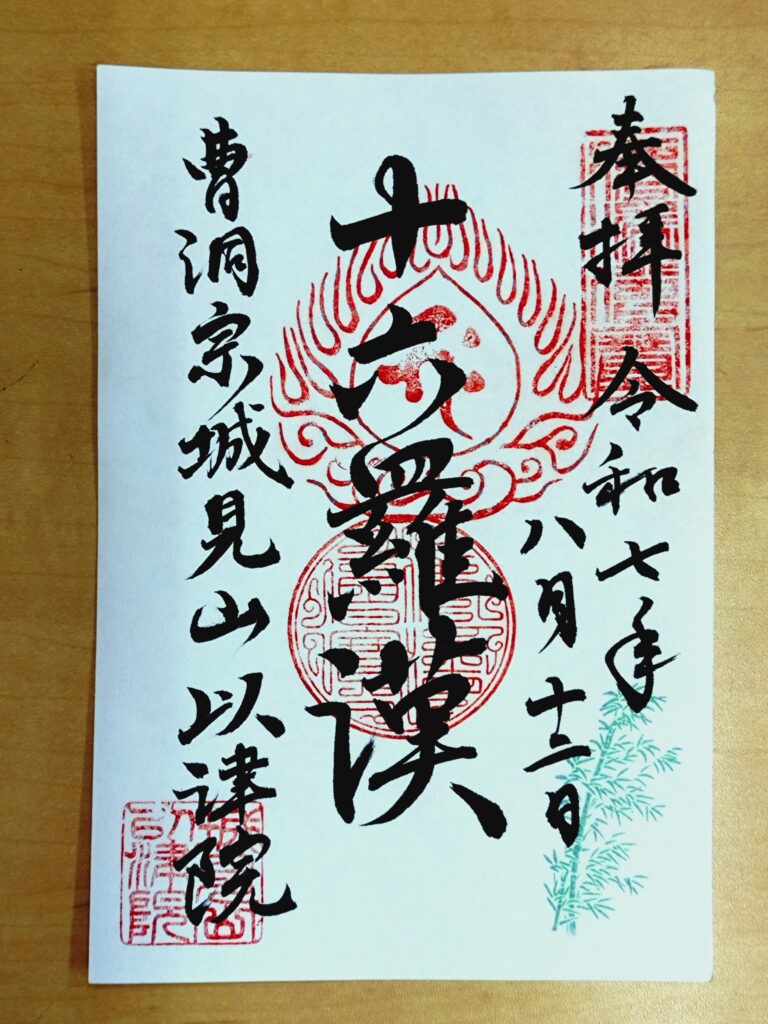 奉拝 令和七年
八月十二日
十六羅漢
曹洞宗城見山以津院
以津院